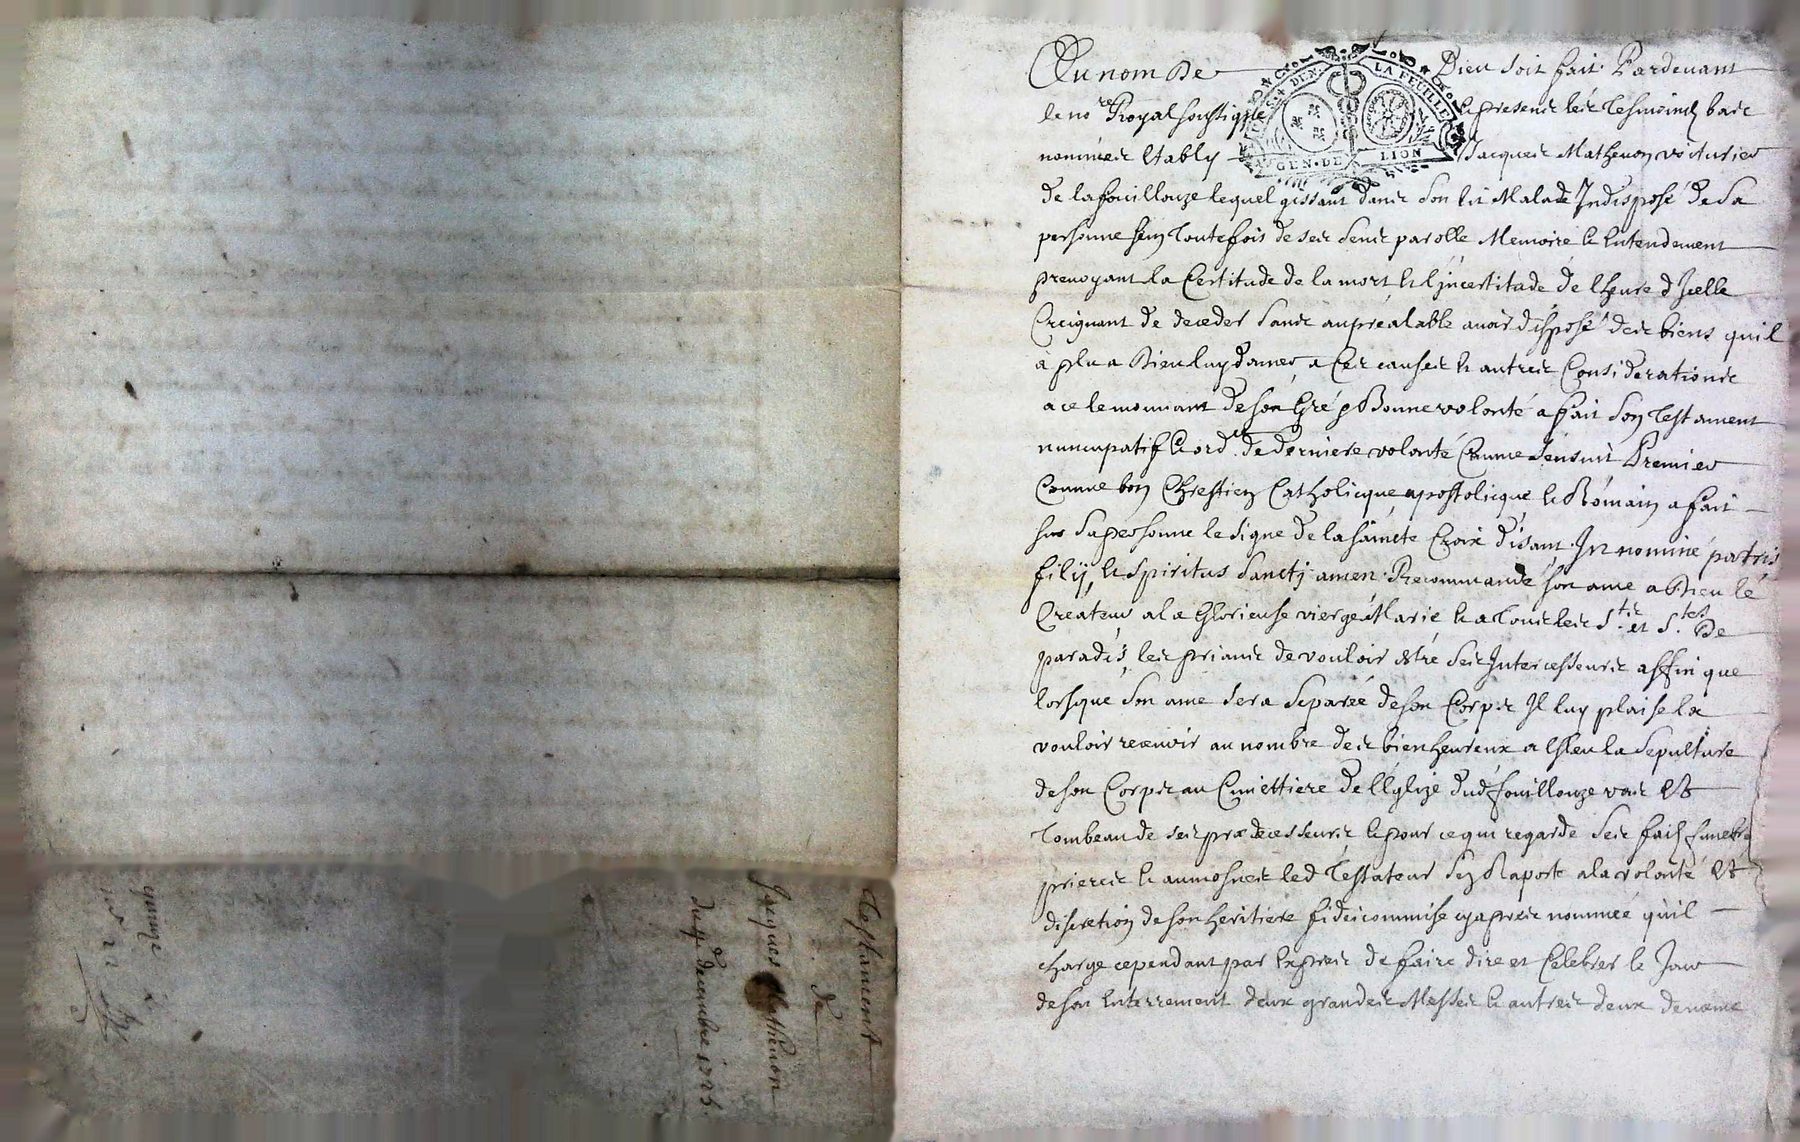 Au nom de Dieu soit fait. Pardevant
le no.re Royal soussigne & presents les tesmoins bas
nommés Estably Jacques Mathevon voiturier
de la fouillouze lequel gissant dans son lit Malade Indisposé de sa
personne sein toutefois de ses sens parolle Memoire & Entendement
prevoyant la Certitude de la mort & l'jncertitude de l'heure d'Jcelle
Creignant de deceder sans aupréalable avoir disposé des biens quil
a plu a Dieu luy donner, a Ces causes & autres Considerations
a ce le mouvant de son Gré & Bonne volonté a fait son testament
nuncupatif & ord. de derniere volonté Comme s'ensuit Premier
Comme bon Chrestien Catholicque apostolicque & Romain a fait
sur sa personne le signe de la saincte Croix disant. In nomine patris
filij, & Spiritus Sanctj amen. Recommande son ame a Dieu le
Createur a la Glorieuse vierge Marie & a tous les S.ts et S.tes De
paradis, les priant de vouloir Estre ses Intercesseurs affin que
lorsque son ame sera separée de son Corps Il luy plaise la
vouloir recevoir au nombre des bienheureux a Esleu la sepulture
de son Corps au Cimettiere de l'Eglize dud fouillouze vas Et
tombeau de ses prædecesseurs & pour ce qui regarde ses fais funebre
prieres & aumosnes led Testateur s'en Raporte a la volonté Et
discretion de son heritiere fideicommise cyapres nommée qu'il
charge cependant par Expres de faire dire et Celebrer le Jour
de son Enterrement deux grandes Messes & autres deux de même
Testament
de
Jacques Mathevon
du 9e decembre 1725.